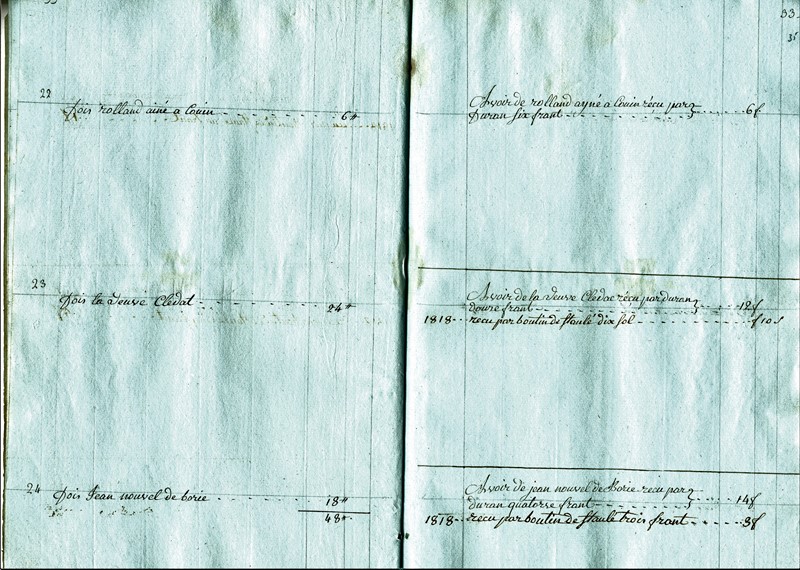 33
22
Dois rolland ainé a Couin 6#
23
Dois la veuve Cledat 24#
24
Dois Jean nouvel de borie 18#
48#
33
Avoir de rolland ayné a Couin récu par
Duran six frant 6f
Avoir de la veuve Cledat récu par duran
douse frant 12f
1818 récu par boutin de staulé dix sol f10s
Avoir de jean nouvel de borie récu par
duran quatorse frant 14f
1818 récu par boutin de staulé trois frant 3f